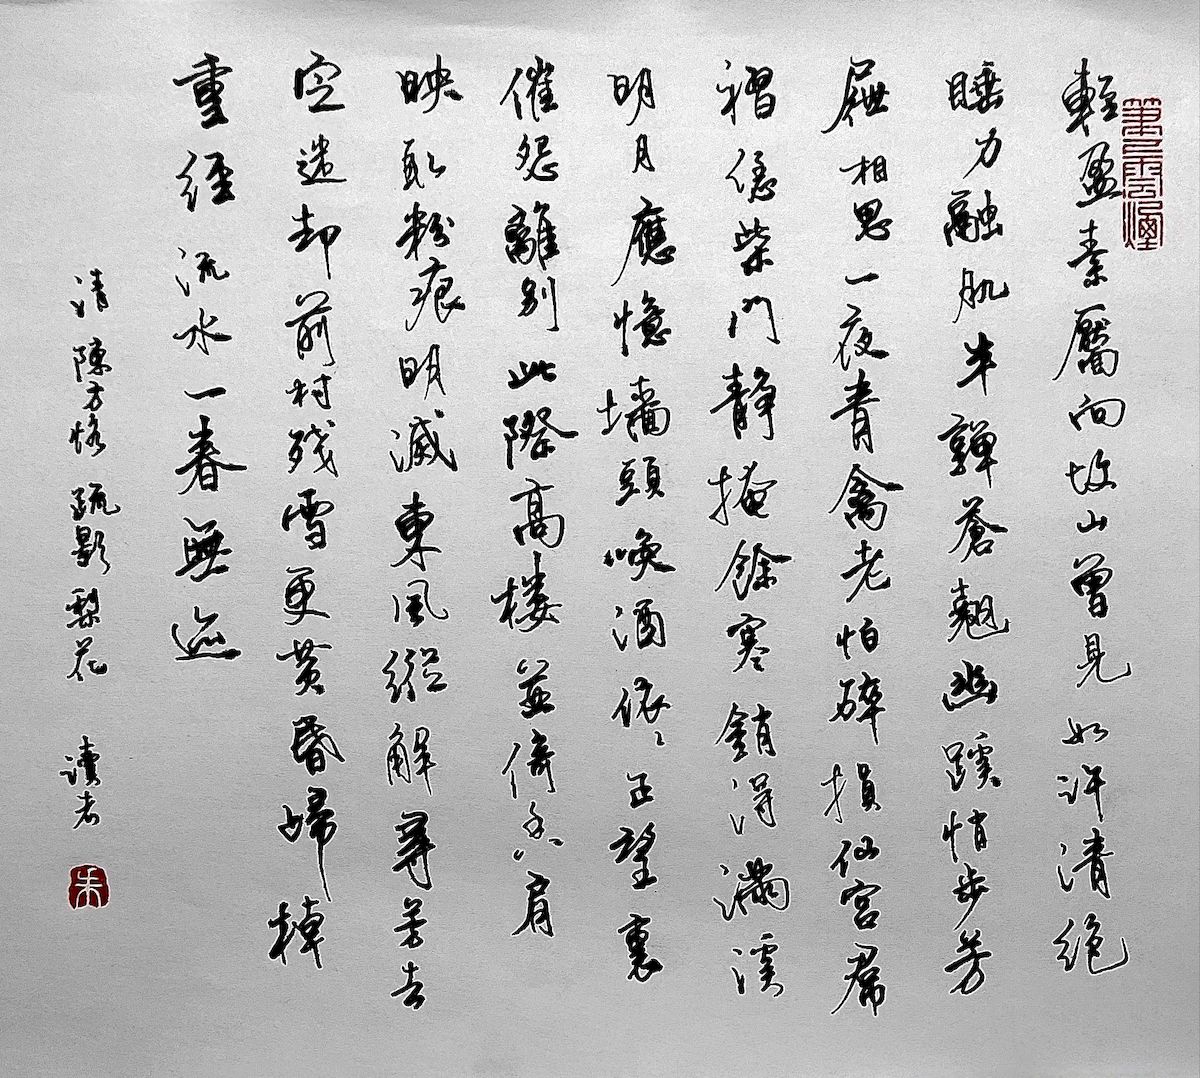 輕盈素靨向故山曾見如許清絕
睡力融肌半軃蒼翹幽蹊悄步芳
屧相思一夜青禽老怕碎損仙宮帬
褶 柴門靜掩餘寒銷得滿溪
明月應憶墻頭喚酒依依正望裏
催怨離别此際高樓並倚香肩
映取粉痕明滅東風縱解尋芳去
空遺却前村殘雪更黃昏歸棹
重經流水一春無迹
清 陳方恪 疏影 梨花 讀者
朱